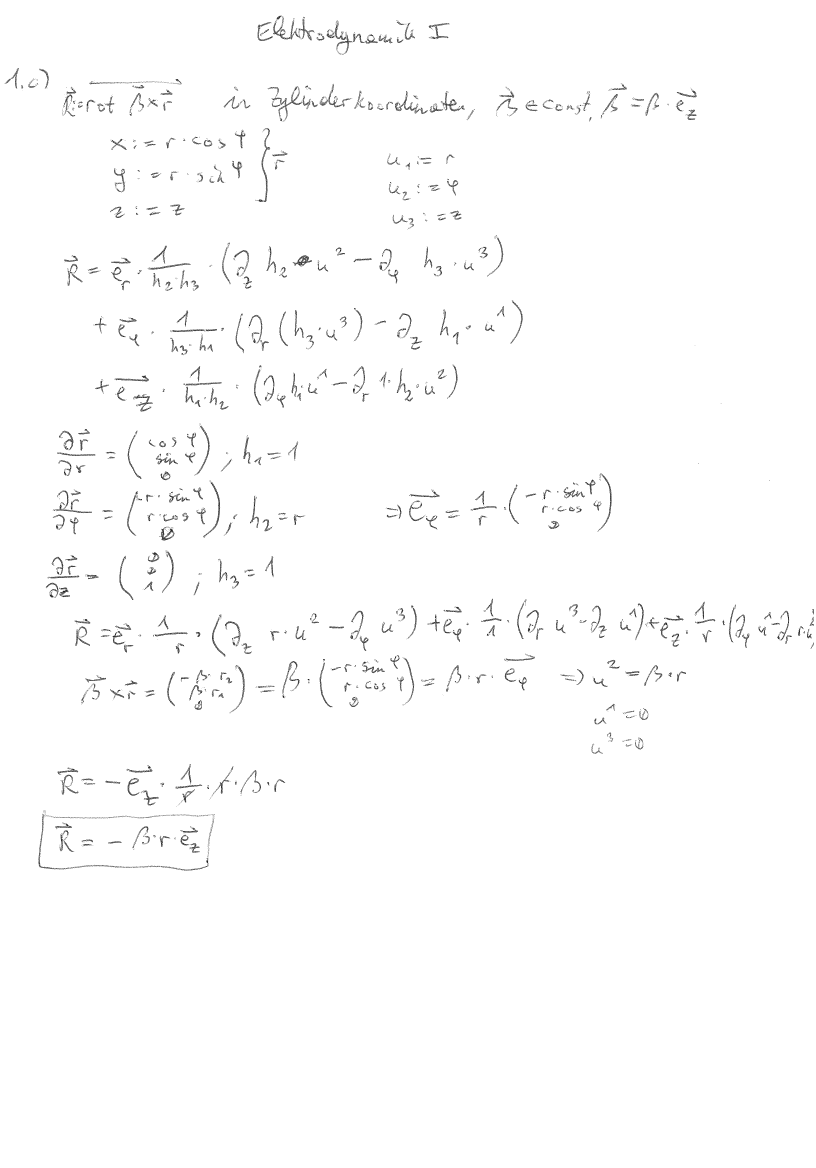 Elektrodynamik I
1.c) R⃗=rot β⃗×r⃗ in Zylinderkoordinaten, β⃗ ∈ const, β⃗ = β·e⃗_z
x := r·cos φ
y := r·sin φ } r⃗
z := z
u₁ := r
u₂ := φ
u₃ := z
R⃗ = e⃗_r · 1/(h₂·h₃) · (∂_z h₂·u² − ∂_φ h₃·u³)
+ e⃗_φ · 1/(h₃·h₁) · (∂_r (h₃·u³) − ∂_z h₁·u¹)
+ e⃗_z · 1/(h₁·h₂) · (∂_φ h₁u¹ − ∂_r 1·h₂·u²)
∂r⃗/∂r = (cos φ, sin φ, 0) ; h₁ = 1
∂r⃗/∂φ = (−r·sin φ, r·cos φ, 0) ; h₂ = r ⇒ e⃗_φ = 1/r · (−r·sin φ, r·cos φ, 0)
∂r⃗/∂z = (0, 0, 1) ; h₃ = 1
R⃗ = e⃗_r · 1/r · (∂_z r·u² − ∂_φ u³) + e⃗_φ · 1/1 · (∂_r u³ − ∂_z u¹) + e⃗_z · 1/r · (∂_φ u¹ − ∂_r r·u²
β⃗×r⃗ = (−β·r₂, β·r₁, 0) = β·(−r·sin φ, r·cos φ, 0) = β·r·e⃗_φ ⇒ u² = β·r
u¹ = 0
u³ = 0
R⃗ = −e⃗_z · 1/r · r·β·r
R⃗ = −β·r·e⃗_z